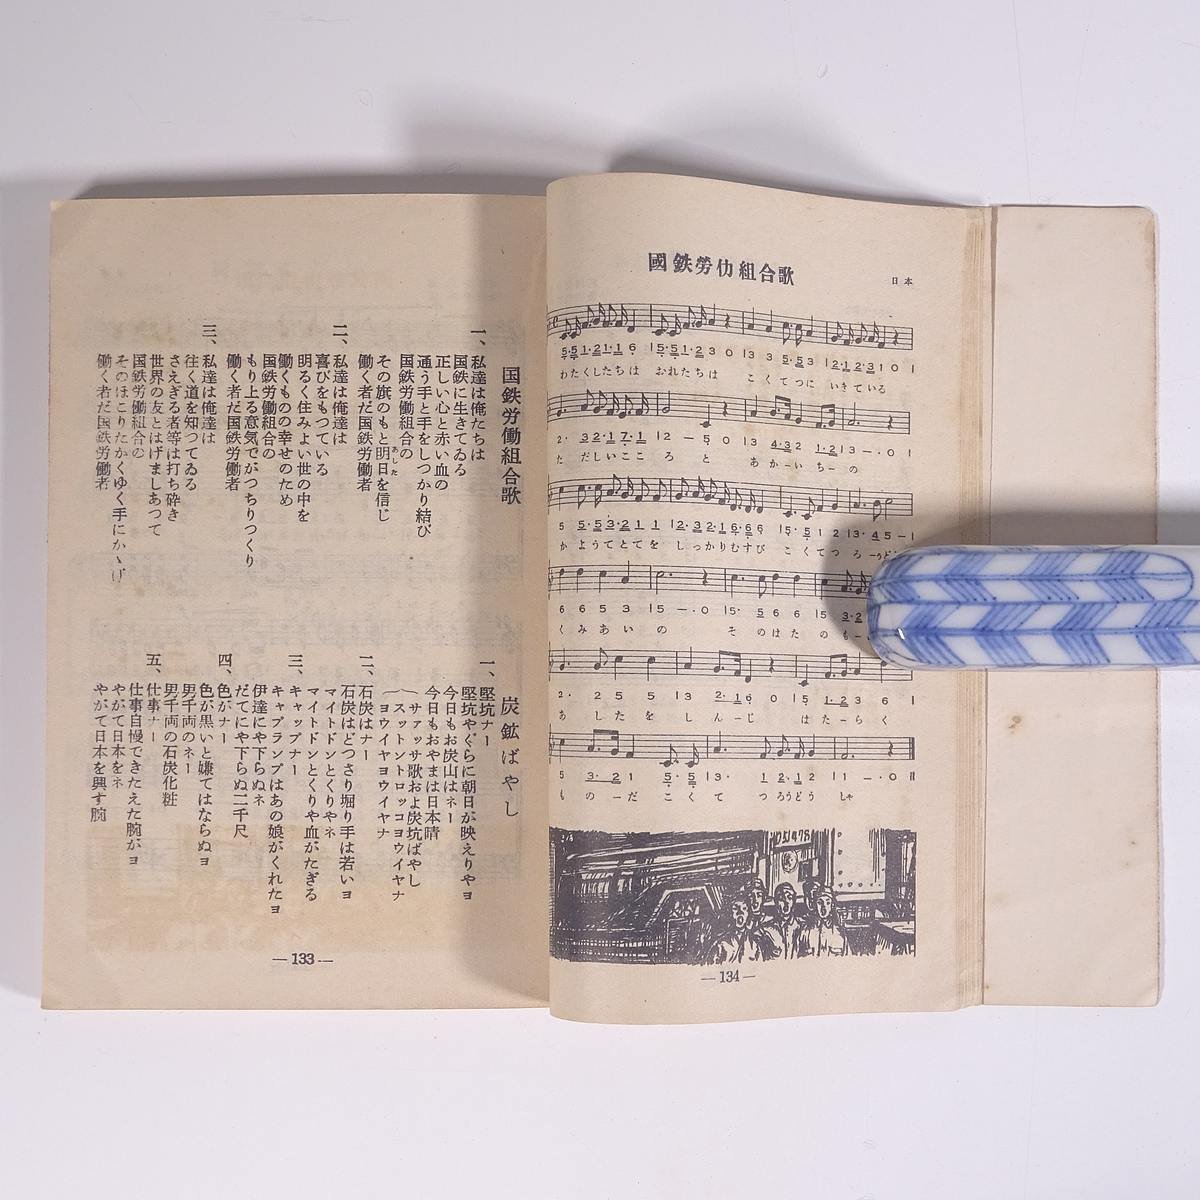 國鉄勞仂組合歌
日本
5 5 1・2 1・1 6 | 5・5 1・2 3 0 | 3 3 5・5 3 | 2・1 2・3 1 0 |
わたくしたちは おれたちは こくてつに いきている
2・ 3 2・1 7・1 | 2 — 5 0 | 3 4・3 2 1・2 | 3 — ・0 |
た だしいここ ろ と あ かーい ちー の
5 5・5 3・2 1 1 | 2・3 2・1 6・6 6 | 5・5 1 2 | 3・ 4 5 — |
か ようてとてを しっかりむすび こくてつ ろ
6 6 5 3 | 5 — ・0 | 5・ 5 6 6 | 5 3・2
く み あ い の そ のはた の も
2・ 2 5 5 | 3 2・1 6 0 | 5 1・2 3 6 |
あ し た を し んーじ は たーら く
5 3・2 1 5・5 | 3・ 1 2・1 2 | 1 — ・0
も のーだ こ く て つ ろうどう しゃ
—134—
国鉄労働組合歌
一、私達は俺たちは
国鉄に生きてゐる
正しい心と赤い血の
通う手と手をしつかり結び
国鉄労働組合の
その旗のもと明日を信じ
あした
働く者だ国鉄労働者
二、私達は俺達は
喜びをもつている
明るく住みよい世の中を
働くもの幸せのため
国鉄労働組合の
もり上る意気でがつちりつくり
働く者だ国鉄労働者
三、私達は俺達は
往く道を知つてゐる
さえぎる者等は打ち砕き
世界の友とはげましあつて
国鉄労働組合の
そのほこりたかくゆく手にかゝげ
働く者だ国鉄労働者
炭鉱ばやし
一、堅坑ナー
堅坑やぐらに朝日が映えりやョ
今日もお炭山はネー
今日もおやまは日本晴
（サァッサ歌およ炭坑ばやし
（スットントロッコヨウイヤナ
（ヨウイヤヨウイヤナ
二、石炭はナー
石炭はどつさり堀り手は若いョ
マイトドンとくりやネ
マイトドンとくりや血がたぎる
三、キャップナー
キャプランプはあの娘がくれたョ
伊達にや下らぬネ
だてにや下らぬ二千尺
四、色がナー
色が黒いと嫌てはならぬョ
男千両のネー
男千両の石炭化粧
五、仕事ナー
仕事自慢できたえた腕がョ
やがて日本をネ
やがて日本を興す腕
—133—